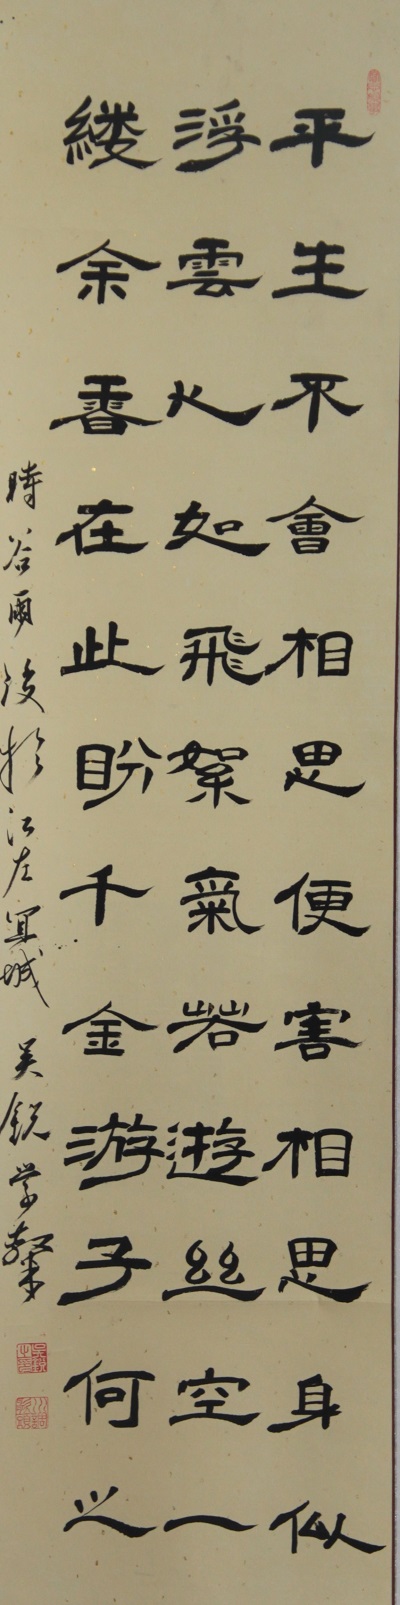 平生不會相思便害相思身似
浮雲心如飛絮氣若遊絲空一
缕余香在此盼千金游子何之
時谷雨後於江左宜城 吴銳学隸